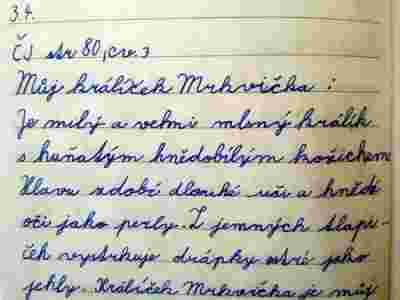 3.4.
ČJ str 80, cv. 3
Můj králíček Mrkvička :
Je milý a velmi mlsný králík
s huňatým hnědobílým kožichem
Hlavu zdobí dlouhé uši a hnědé
oči jako perly. Z jemných tlapi-
ček vystrkuje drápky ostré jako
jehly. Králíček Mrkvička je můj